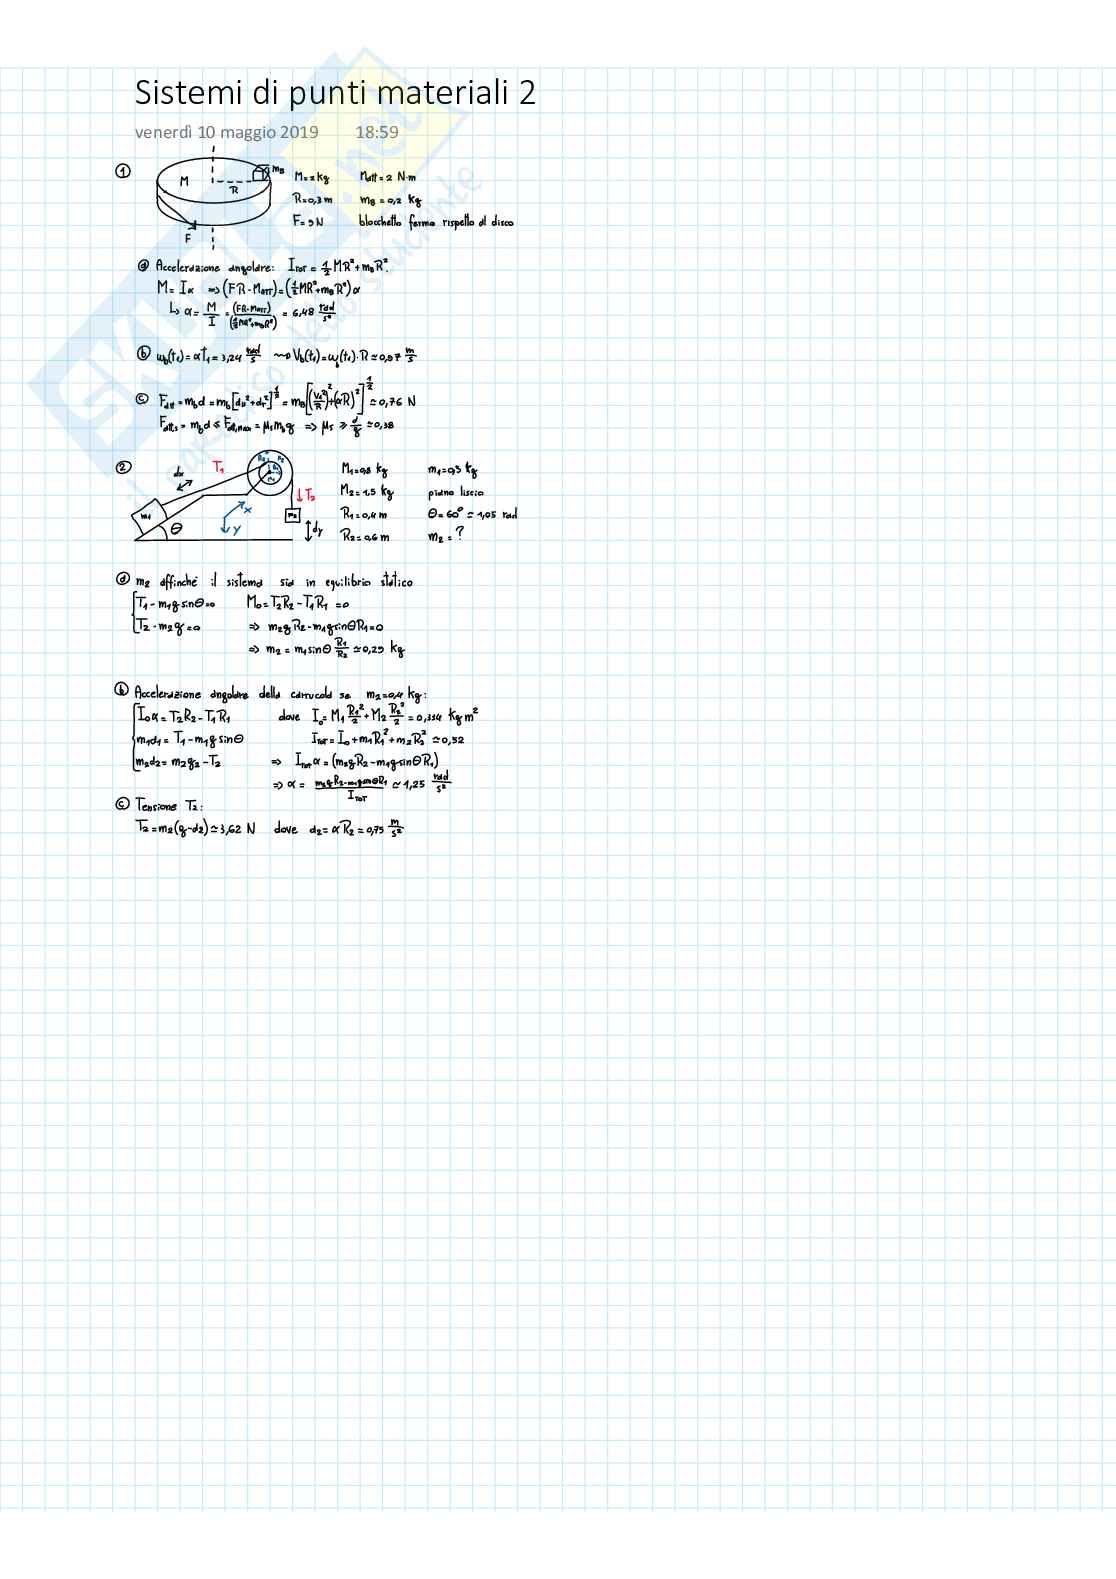 Sistemi di punti materiali 2
venerdì 10 maggio 2019 18:59
① M R mB F
M=2 kg Matt=2 N·m
R=0,3 m mB=0,2 kg
F=9 N blocchetto fermo rispetto al disco
ⓐ Accelerazione angolare: ITOT = 1/2 MR²+mBR².
M = Iα ⇒ (FR-MATT)=(1/2 MR²+mBR²)α
↳ α = M/I = (FR-MATT)/(1/2 MR²+mBR²) = 6,48 rad/s²
ⓑ ωb(t₁)=αt₁=3,24 rad/s ⇝ Vb(t₁)=ω(t₁)·R≃0,97 m/s
ⓒ Fatt = mba = mb[ac²+ar²]^1/2 = mB[(Vb²/R)²+(αR)²]^1/2 ≃ 0,76 N
Fatt,s = mba ≤ Fatt,max = μsmbg ⇒ μs ≥ a/g ≃ 0,38
② ax T1 R2 M2 R1 M1 T2 m1 θ x y m2 ay
M1=0,8 kg m1=0,5 kg
M2=1,5 kg piano liscio
R1=0,4 m θ=60°≃1,05 rad
R2=0,6 m m2=?
ⓐ m2 affinchè il sistema sia in equilibrio statico
T1-m1g sinθ=0 M0=T2R2-T1R1=0
T2-m2g=0 ⇒ m2gR2-m1g sinθR1=0
⇒ m2=m1sinθ R1/R2 ≃0,29 kg
ⓑ Accelerazione angolare della carrucola se m2=0,4 kg:
I0α=T2R2-T1R1 dove I0=M1 R1²/2+M2 R2²/2=0,334 kg m²
m1a1=T1-m1g sinθ ITOT=I0+m1R1²+m2R2²≃0,52
m2a2=m2g2-T2 ⇒ ITOTα=(m2gR2-m1g sinθR1)
⇒ α= (m2gR2-m1g sinθR1)/ITOT ≃1,25 rad/s²
ⓒ Tensione T2:
T2=m2(g-a2)≃3,62 N dove a2=αR2=0,75 m/s²